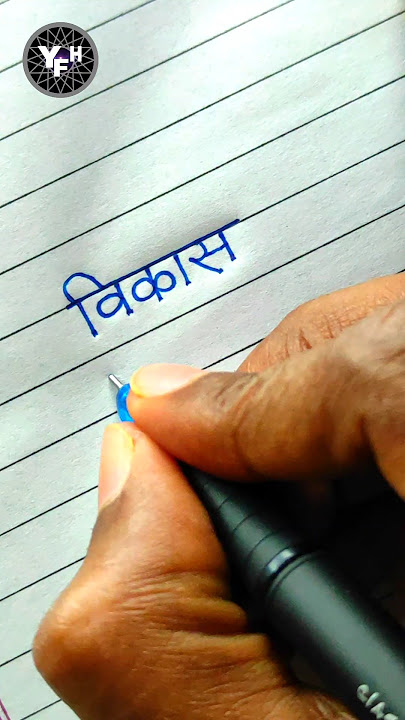 YFH
विकास